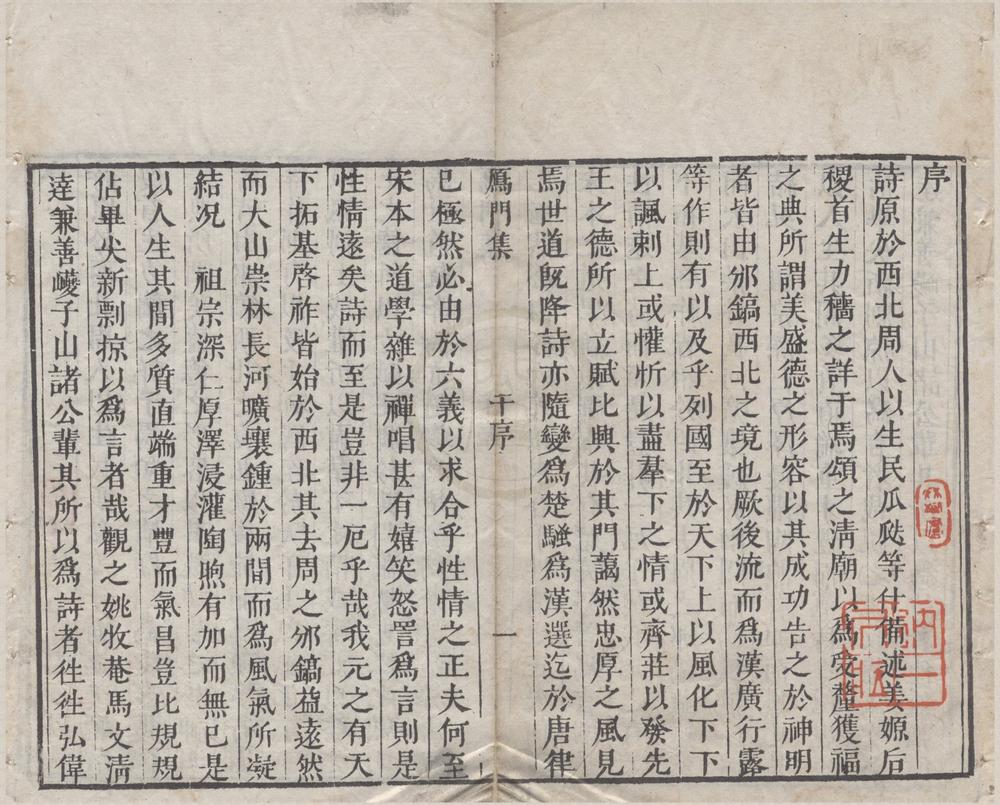 序
詩原於西北周人以生民瓜瓞等什備述姜嫄后
稷首生力穡之詳于焉頌之淸廟以爲受釐獲福
之典所謂美盛德之形容以其成功告之於神明
者皆由邠鎬西北之境也厥後流而爲漢廣行露
等作則有以及乎列國至於天下上以風化下下
以諷刺上或懽忻以盡羣下之情或齊莊以發先
王之德所以立賦比興於其門藹然忠厚之風見
焉世道旣降詩亦隨變爲楚騷爲漢選迄於唐律
鴈門集 干序 一
已極然必由於六義以求合乎性情之正夫何至
宋本之道學雜以禪唱甚有嬉笑怒詈爲言則是
性情遠矣詩而至是豈非一厄乎哉我元之有天
下拓基啓祚皆始於西北其去周之邠鎬益遠然
而大山崇林長河曠壤鍾於兩間而爲風氣所凝
結况 祖宗深仁厚澤浸灌陶煦有加而無已是
以人生其間多質直端重才豐而氣昌豈比規規
佔畢尖新剽掠以爲言者哉觀之姚牧菴馬文淸
達兼善巙子山諸公輩其所以爲詩者徃徃弘偉